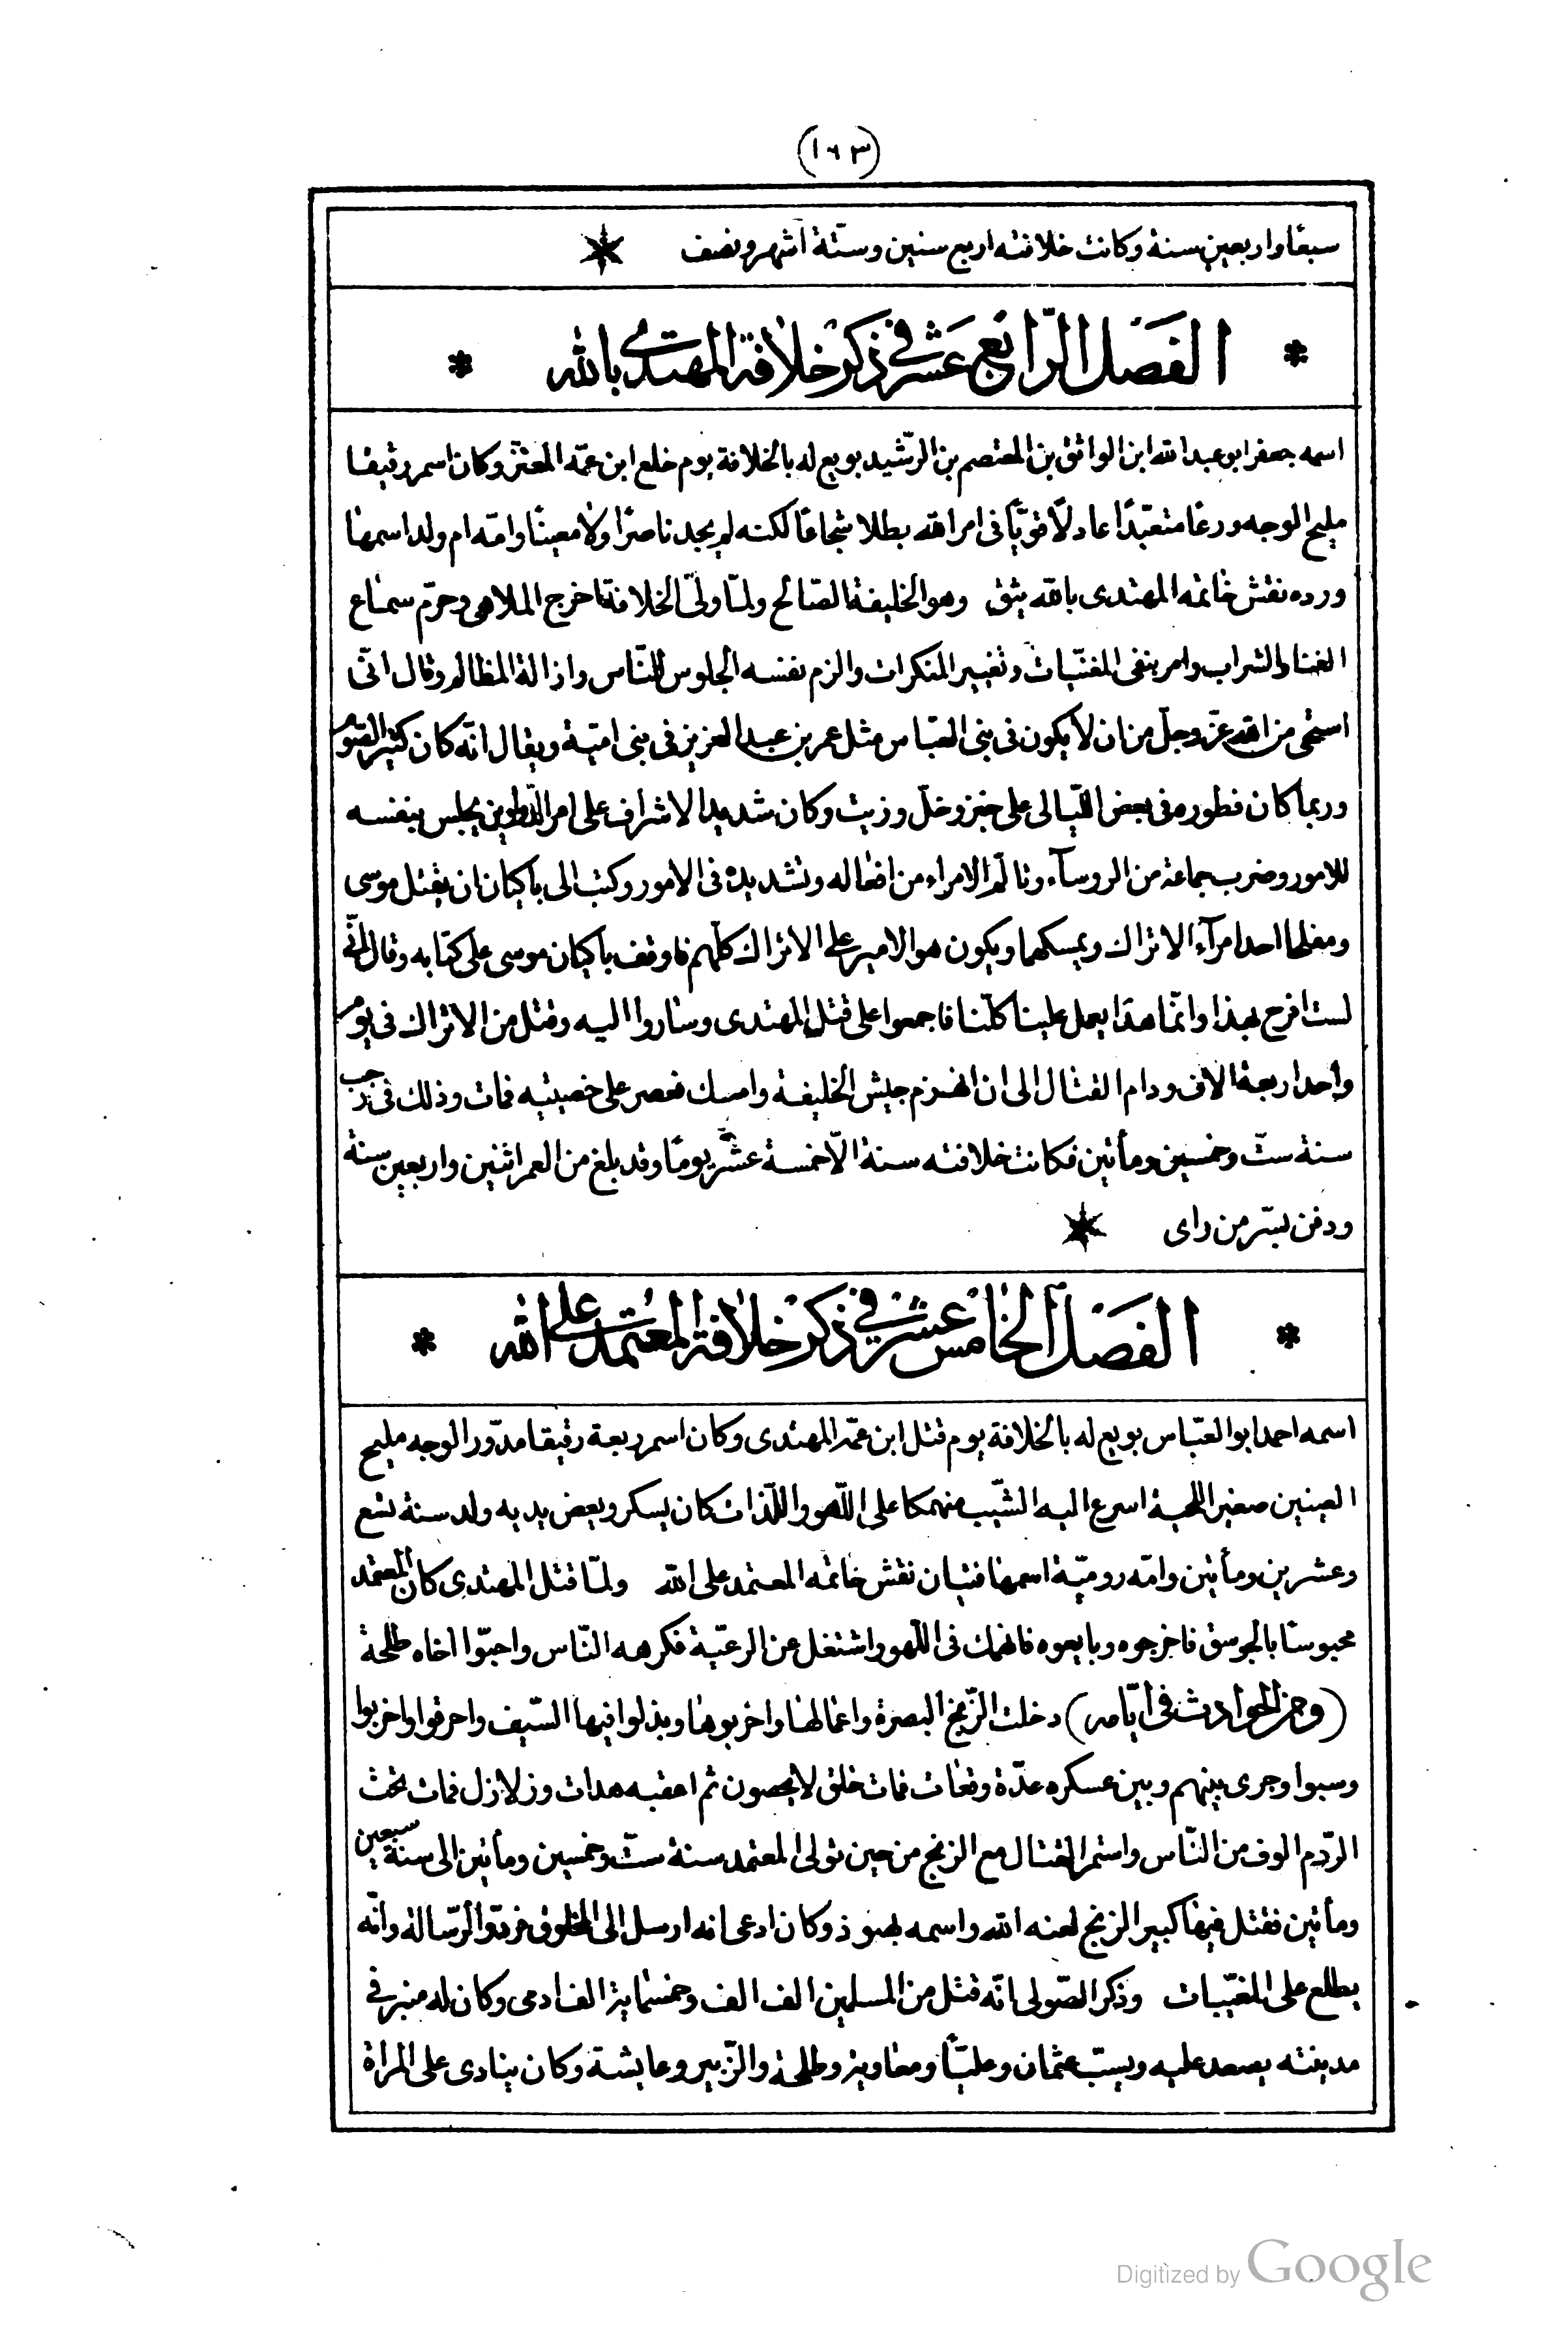 (١٦٣)
سبعًا واربعين سنة وكانت خلافته اربع سنين وستّة اشهر ونصف
* الفصل الرّابع عشر فى ذكر خلافة المهتدى بالله *
اسمه جعفر ابو عبد الله ابن الواثق بن المعتصم بن الرّشيد بويع له بالخلافة يوم خلع ابن عمّه المعتزّ وكان اسمر رقيقا
مليح الوجه ورعًا متعبّدًا عادلًا قويًّا فى امر الله بطلا شجاعًا لكنه لم يجد ناصرًا ولا معينًا وامّه ام ولد اسمها
ورده نقش خاتمه المهتدى بالله يثق وهو الخليفة الصّالح ولمّا ولىّ الخلافة اخرج الملاهى وحرّم سماع
الغناء والشراب وامر بنفى المغنّيات وتغيير المنكرات والزم نفسه الجلوس للنّاس وازالة المظالم وقال انّى
استحى من الله عزّ وجلّ من ان لا يكون فى بنى العبّاس مثل عمر بن عبد العزيز فى بنى اميّة ويقال انّه كان كثير الصّوم
وربما كان فطوره فى بعض اللّيالى على خبز وخلّ وزيت وكان شديد الاشراف على امر الدّواوين يجلس بنفسه
للامور وضرب جماعة من الروسآء وتألّم الامراء من افعاله وتشديده فى الامور وكتب الى باكيان ان يقتل موسى
ومفلحا احد امرآء الاتراك ويمسكهما ويكون هو الامير على الاتراك كلّهم فاوقف باكيان موسى على كتابه وقال انّى
لست افرح بهذا وانّما هذا يعمل علينا كلّنا فاجمعوا على قتل المهتدى وساروا اليه وقتل من الاتراك فى يوم
واحد اربعة الاف ودام القتال الى ان انهزم جيش الخليفة وامسك فعصر على خصيتيه فمات وذلك فى رجب
سنة ستّ وخمسين ومأتين فكانت خلافته سنة الّا خمسة عشر يومًا وقد بلغ من العمر اثنين واربعين سنة
ودفن بسرّ من راى
* الفصل الخامس عشر فى ذكر خلافة المعتمد على الله *
اسمه احمد ابو العبّاس بويع له بالخلافة يوم قتل ابن عمّه المهتدى وكان اسمر ربعة رقيقا مدوّر الوجه مليح
العينين صغير اللحية اسرع اليه الشّيب منهمكا على اللّهو واللّذات كان يسكر ويعض يديه ولد سنة تسع
وعشرين ومأتين وامّه روميّة اسمها فتيان نقش خاتمه المعتمد على الله ولمّا قتل المهتدى كان المعتمد
محبوسًا بالجوسق فاخرجوه وبايعوه فانهمك فى اللّهو واشتغل عن الرعيّة فكرهه النّاس واحبّوا اخاه طلحة
(ومن الحوادث فى ايّامه) دخلت الزّنج البصرة واعمالها واخربوها وبذلوا فيها السّيف واحرقوا واخربوا
وسبوا وجرى بينهم وبين عسكره عدّة وقعات فمات خلق لا يحصون ثم اعقبه هدات وزلازل فمات تحت
الرّدم الوف من النّاس واستمر القتال مع الزنج من حين تولى المعتمد سنة ستّ وخمسين ومأتين الى سنة سبعين
ومأتين فقتل فيها كبير الزنج لعنه الله واسمه بهبوذ وكان ادعى انه ارسل الى الخلق فردّوا الرّسالة وانّه
يطلع على المغيّبات وذكر الصّولى انّه قتل من المسلمين الف الف وخمسماية الف ادمى وكان له منبر فى
مدينته يصعد عليه ويسبّ عثمان وعليًّا ومعاوية وطلحة والزّبير وعايشة وكان ينادى على المراة
Digitized by Google